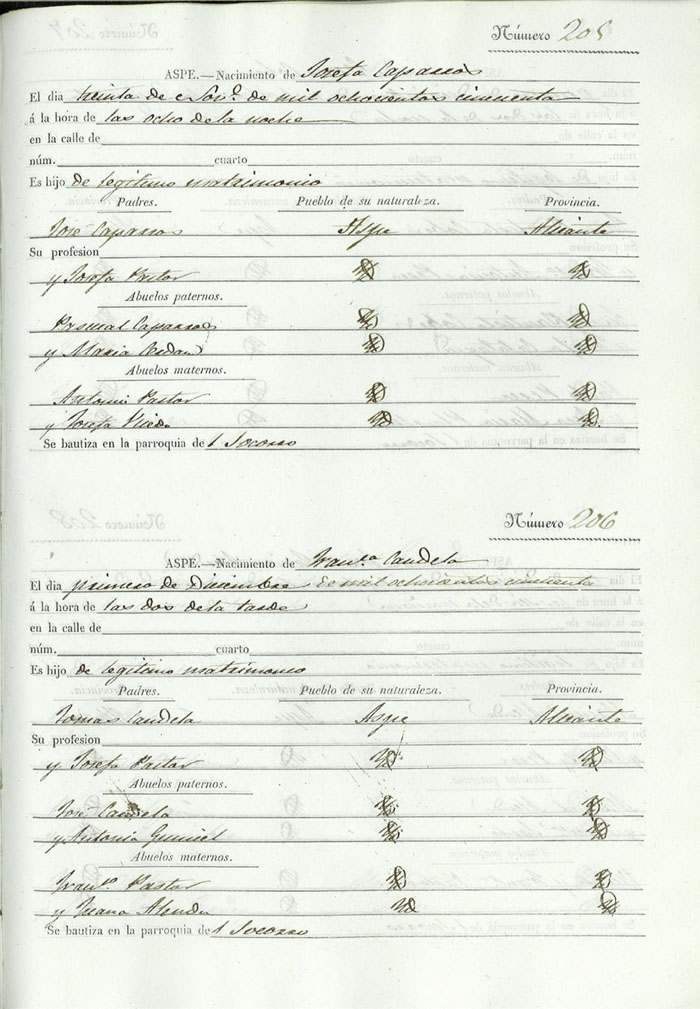 Número 205
ASPE.—Nacimiento de Josefa Caparros
El dia treinta de Nov.e de mil ochocientos cincuenta
á la hora de las ocho de la noche
en la calle de
núm. cuarto
Es hijo de legitimo matrimonio
Padres. Pueblo de su naturaleza. Provincia.
José Caparros Aspe Alicante
Su profesion
y Josefa Pastor Yd Yd
Abuelos paternos.
Pascual Caparros Yd Yd
y Maria Yd Yd
Abuelos maternos.
Antonio Pastor Yd Yd
y Josefa Yd Yd
Se bautiza en la parroquia de l Socorro
Número 206
ASPE.—Nacimiento de Fran.ca Candela
El dia primero de Diciembre de mil ochocientos cincuenta
á la hora de las dos de la tarde
en la calle de
núm. cuarto
Es hijo de legitimo matrimonio
Padres. Pueblo de su naturaleza. Provincia.
Tomas Candela Aspe Alicante
Su profesion
y Josefa Pastor Yd Yd
Abuelos paternos.
José Candela Yd Yd
y Antonia Yd Yd
Abuelos maternos.
Fran.co Pastor Yd Yd
y Juana Yd Yd
Se bautiza en la parroquia de l Socorro